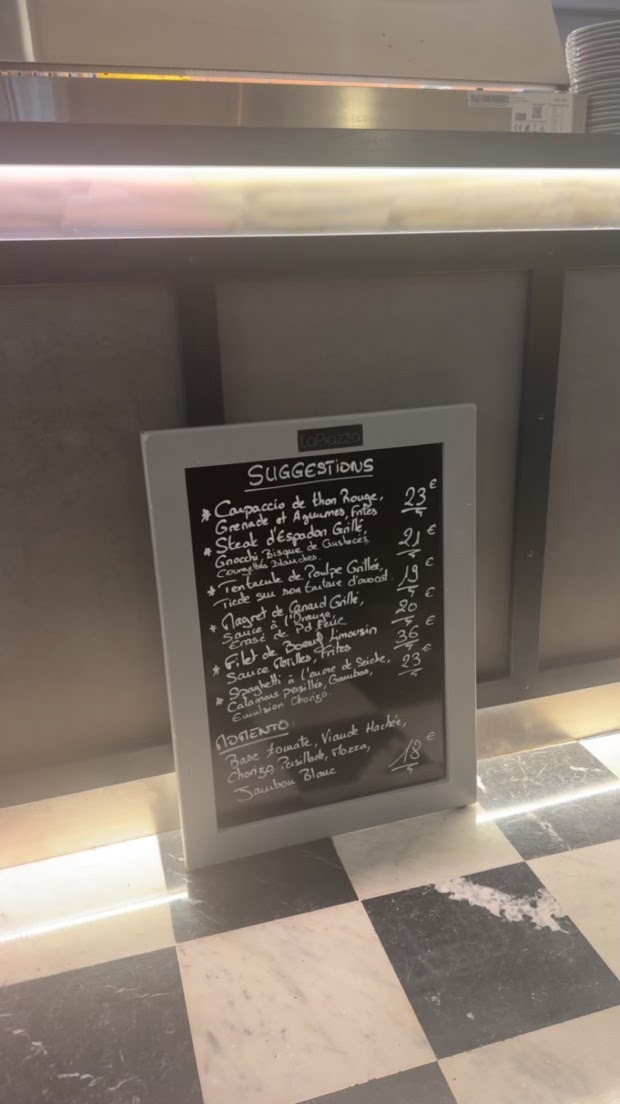 LaPiazza
SUGGESTIONS
* Carpaccio de thon Rouge, 23€
Grenade et Agrumes, Frites
* Steak d'Espadon Grillé, 21€
Gnocchi, Bisque de Crustacés
Courgettes Blanches.
* Tentacule de Poulpe Grillée, 19€
Tiède sur son tartare d'avocat.
* Magret de Canard Grillé, 20€
Sauce à l'Orange,
Ecrasé de Pd Terre
* Filet de Boeuf Limousin 36€
Sauce Morilles, Frites
* Spaghetti à l'encre de Seiche, 23€
Calamars persillés, Gambas,
Emulsion Chorizo.
MOMENTO:
Base tomate, Viande Hachée,
Chorizo, Persillade, Mozza, 18€
Jambon Blanc